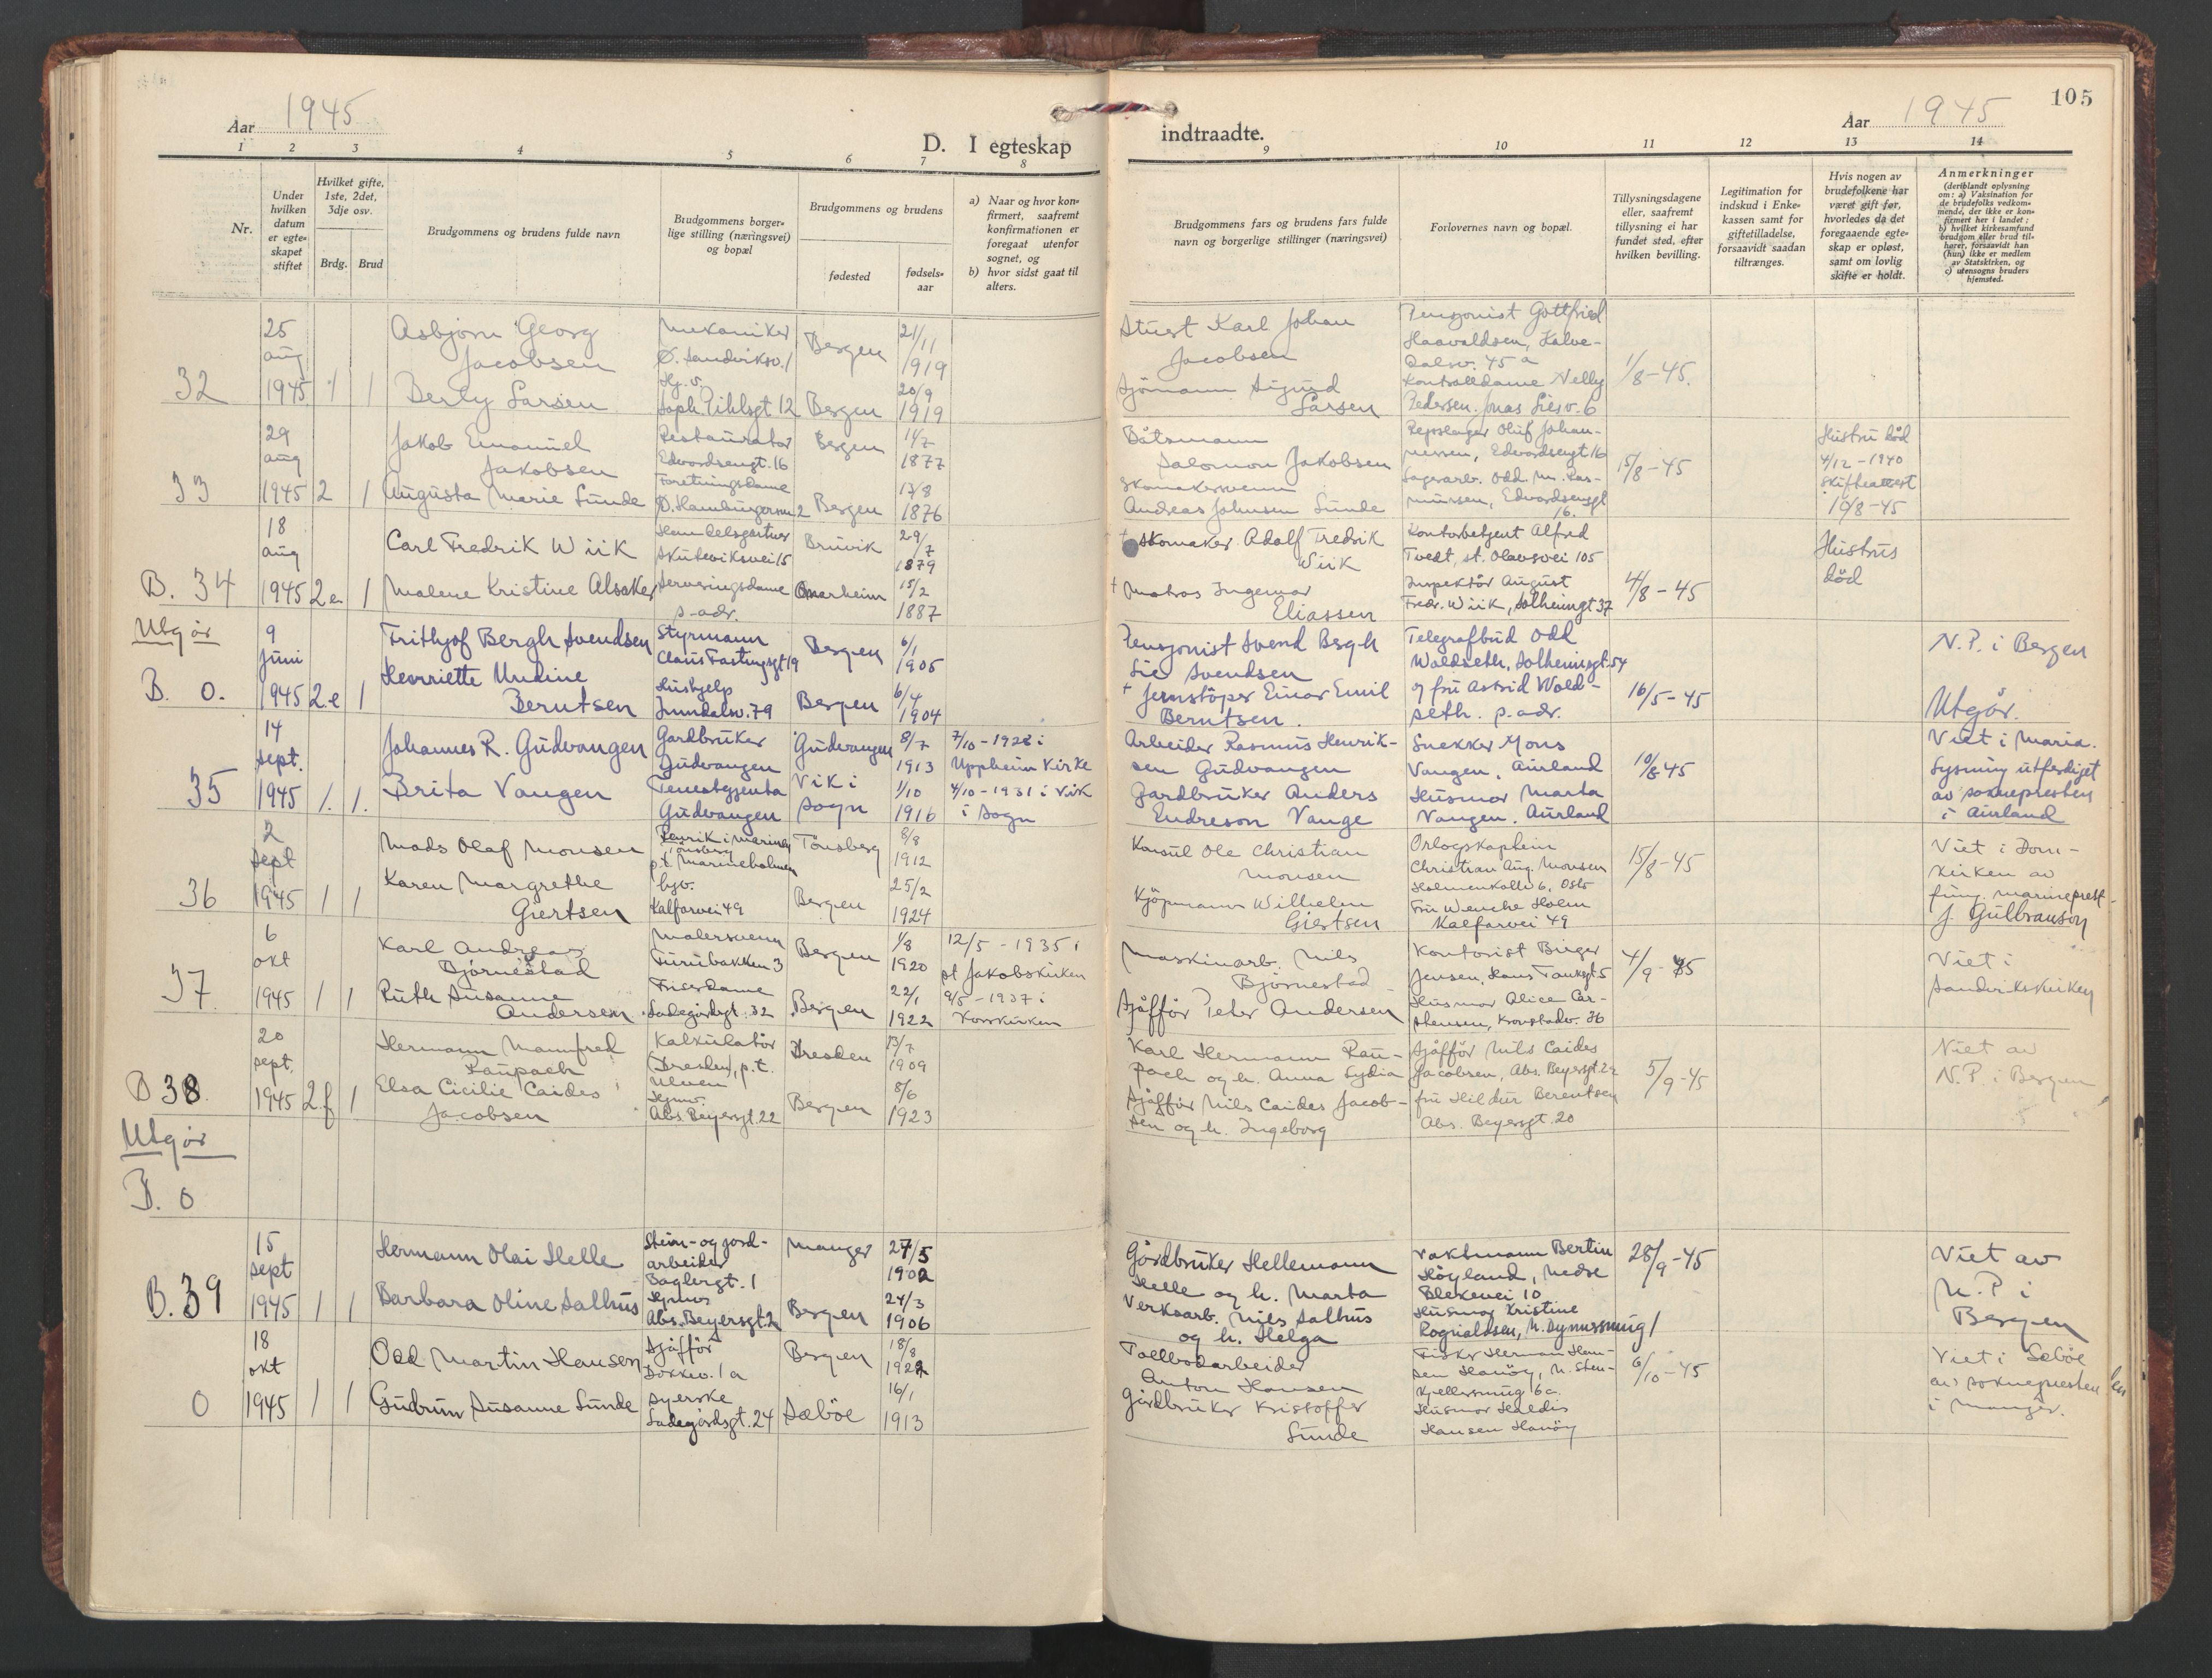 105
Aar 1945
D. I egteskap indtraadte.
Aar 1945
1 2 3 4 5 6 7 8 9 10 11 12 13 14
Nr.
Under hvilken datum er egteskapet stiftet
Hvilket gifte, 1ste, 2det, 3dje osv.
Brdg. Brud
Brudgommens og brudens fulde navn
Brudgommens borgerlige stilling (næringsvei) og bopæl
Brudgommens og brudens
fødested
fødselsaar
a) Naar og hvor konfirmert, saafremt konfirmationen er foregaat utenfor sognet, og
b) hvor sidst gaat til alters.
Brudgommens fars og brudens fars fulde navn og borgerlige stillinger (næringsvei)
Forlovernes navn og bopæl.
Tillysningsdagene eller, saafremt tillysning ei har fundet sted, efter hvilken bevilling.
Legitimation for indskud i Enkekassen samt for giftetilladelse, forsaavidt saadan tiltrænges.
Hvis nogen av brudefolkene har været gift før, hvorledes da det foregaaende egteskap er opløst, samt om lovlig skifte er holdt.
Anmerkninger
(deriblandt oplysning om: a) Vaksination for de brudefolks vedkommende, der ikke er konfirmert her i landet; b) hvilket kirkesamfund brudgom eller brud tilhører, forsaavidt han (hun) ikke er medlem av Statskirken, og c) utensogns bruders hjemsted.
32
25 aug 1945
1 1
Asbjørn Georg Jacobsen
Berly Larsen
Mekaniker
Ø. Sandviksv. 1
Hj. v.
Soph. Pihlsgt 12
Bergen 21/11 1919
Bergen 20/9 1919
Stuert Karl Johan Jacobsen
Sjömann Sigurd Larsen
Pensjonist Gottfried Haavaldsen, Kalvedalsv. 45 a
Kontrolldame Nelly Pedersen. Jonas Liesv. 6
1/8-45.
33
29 aug 1945
2 1
Jakob Emanuel Jakobsen
Augusta Marie Sunde
Restauratør
Edvardsengt. 16
Foretningsdame
Ø. Hamburgersm 2
Bergen 14/7 1877
Bergen 13/8 1876
Båtsmann
Salomon Jakobsen
Skomakersvenn
Andreas Johnsen Sunde
Repslager Oluf Johannessen, Edvardsengt 16
Lagerarb. Odd. M. Rasmussen, Edvardsensgt 16.
15/8-45
Hustru död
4/12-1940
Skifteattest
19/8-45
B. 34
18 aug 1945
2 e 1
Carl Fredrik Wiik
Malene Kristine Alsaker
Handelsgartner
Skuteviksvei 15
Serveringsdame
s. adr.
Bruvik 29/7 1879
Onarheim 15/2 1887
+ Skomaker Adolf Fredrik Wiik
+ Matros Ingemar Eliassen
Kontorbetjent Alfred Tvedt, st. Olavsvei 105
Inspektör August Fredr. Wiik, Solheimgt 37
4/8-45
Hustrus död
Utgår
B. 0.
9 juni 1945
2.e 1
Frithjof Bergh Svendsen
Henriette Undine Berntsen
Styrmann
Claus Fastingsgt 19
Hushjelp
Jonndalsv. 79
Bergen 6/1 1905
Bergen 6/4 1904
Pensjonist Svend Bergh Lie Svendsen
+ Jernstöper Einar Emil Berntsen.
Telegrafbud Odd Waldseth, Solheimsgt. 54
og fru Astrid Waldseth. p. adr.
16/5-45
N.P. i Bergen
Utgår.
35
14 sept. 1945
1. 1.
Johannes R. Gudvangen
Brita Vangen
Gardbruker
Gudvangen
Tenestejenta
Gudvangen
Gudvangen 8/7 1913
Vik i Sogn 1/10 1916
7/10-1928 i Uppheim Kirke
4/10-1931 i Vik i Sogn
Arbeider Rasmus Henriksen Gudvangen
Gardbruker Anders Endreson Vange
Snekker Mons Vangen, Aurland
Husmor Marta Vangen, Aurland
10/8 45
Viet i Maria.
Lysning utferdiget av sokneprestery i Aurland
36
2 sept 1945
1 1
Mads Olaf Monsen
Karen Margrethe Giertsen
Fenrik i marinen
Tönsberg
p.t. Marineholmen
hjv.
Kalfarvei 49
Tönsberg 8/8 1912
Bergen 25/2 1924
Konsul Ole Christian Monsen
Kjöpmann Wilhelm Giertsen
Orlogskaptein
Christian Aug. Monsen
Holmenkollv 6, Oslo
Fru Wenche Holm
Kalfarvei 49
15/8-45
Viet i Domkirken av fung. marineprest J. Gulbranson
37
6 okt 1945
1 1
Karl Andreas Björnestad
Ruth Susanne Andersen
Malersvenn
Furubakken 3
Frisørdame
Ladegårdsgt. 32
Bergen 1/8 1920
Bergen 22/1 1922
12/5-1935 i st Jakobskirken
9/5-1937 i Korskirken
Maskinarb. Nils Björnestad
Sjåfför Peter Andersen
Kontorist Birger Jensen, Hans Tanksgt. 5
Husmor Alice Carstensen, Kronstadv. 36
4/9-45
Viet i Sandvikskirken
B 38.
20 sept. 1945
2.f 1
Hermann Mannfred Raupach
Elsa Cicilie Caides Jacobsen
Kalkulatör
(Dresden), p.t. Ulven
Hjmv.
Abs. Beyersgt. 22
Dresden 13/7 1909
Bergen 8/6 1923
Karl Hermann Raupach og h. Anna Lydia
Sjåfför Nils Caides Jacobsen og h. Ingeborg
Sjåfför Nils Caides Jacobsen, Abs. Beyersgt. 22
fru Hildur Berentsen
Abs. Beyersgt. 20
5/9-45
Viet av N.P. i Bergen
Utgår
B. 0
B. 39
15 sept 1945
1 1
Hermann Olai Helle
Barbara Oline Salhus
Stein- og jordarbeider
Baglergt. 1
Hjmv
Abs. Beyersgt. 2
Manger 27/5 1902
Bergen 24/3 1906
Gårdbruker Hellemann Helle og h. Marta
Verksarb. Nils Salhus og h. Helga
Vaktmann Bertin Höyland, Nedre Blekevei 10
Husmor Kristine Rognaldsen, N. Dynnersmug 1
28/9-45
Viet av N.P i Bergen
0
18 okt 1945
1 1
Odd Martin Hansen
Gudrun Susanne Sunde
Sjåfför
Dokkev. 1 a
Syerske
Ladegårdsgt. 24
Bergen 18/8 1922
Sæböe 16/1 1913
Tollbodarbeider
Anton Hansen
Gårdbruker Kristoffer Sunde
Fisker Herman Hansen Hanöy, N. Stenkjellersmug 6 a.
Husmor Haldis Hansen Hanöy
6/10-45
Viet i Sæböe av sokneprestem i Manger.